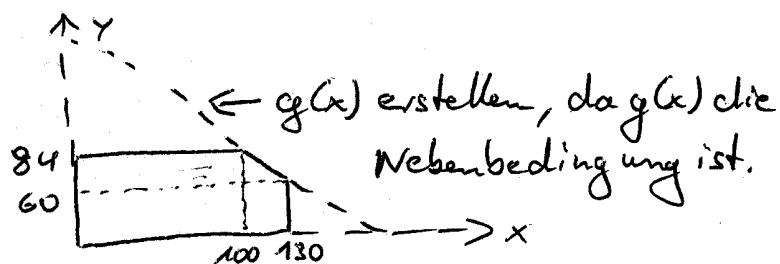 Y
g(x) erstellen, da g(x) die
Nebenbedingung ist.
84
60
100 130
X